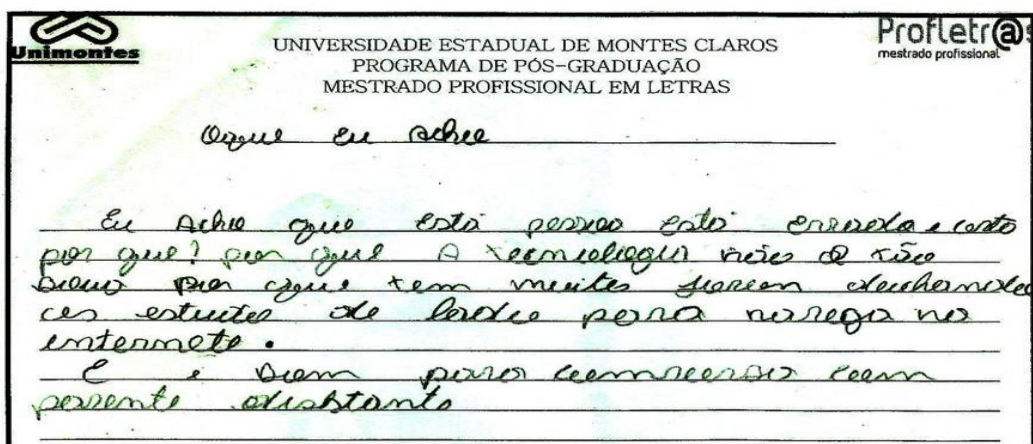 Unimontes
UNIVERSIDADE ESTADUAL DE MONTES CLAROS
PROGRAMA DE PÓS-GRADUAÇÃO
MESTRADO PROFISSIONAL EM LETRAS
Profletr@s
mestrado profissional
Oque eu Acho
Eu Acho que está pessoa está errada e certo
por que? por que A não é tão
por que tem muitos
de lado para no
internete.
E é bom para com
parente distante